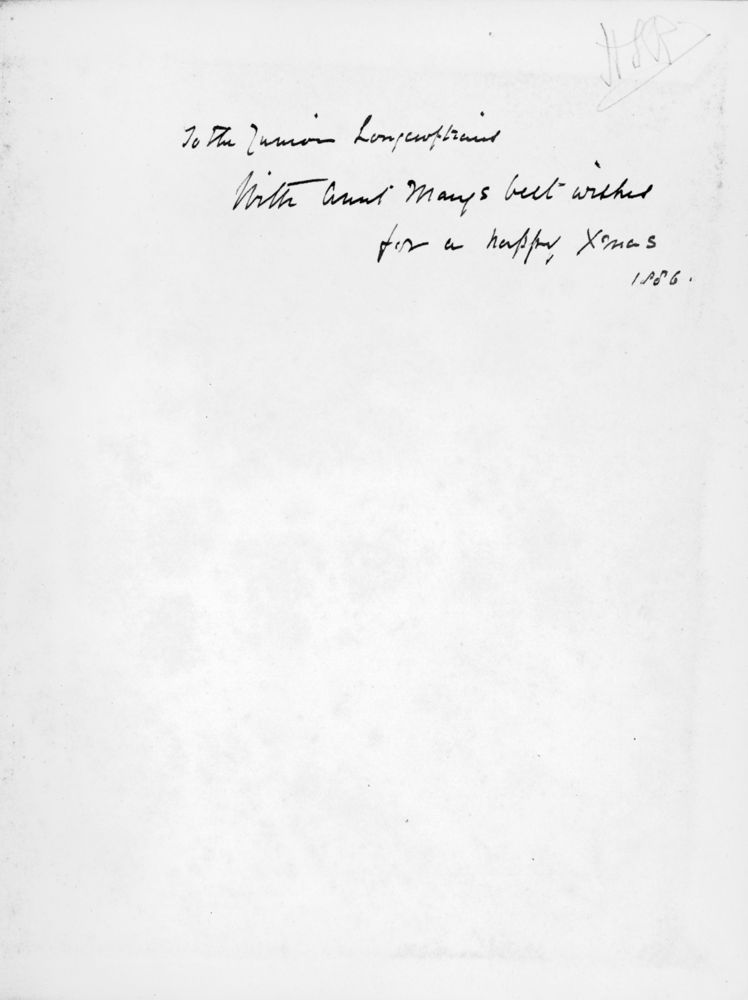 To the Junior
With Aunt Mary's best wishes
for a happy Xmas
1886.